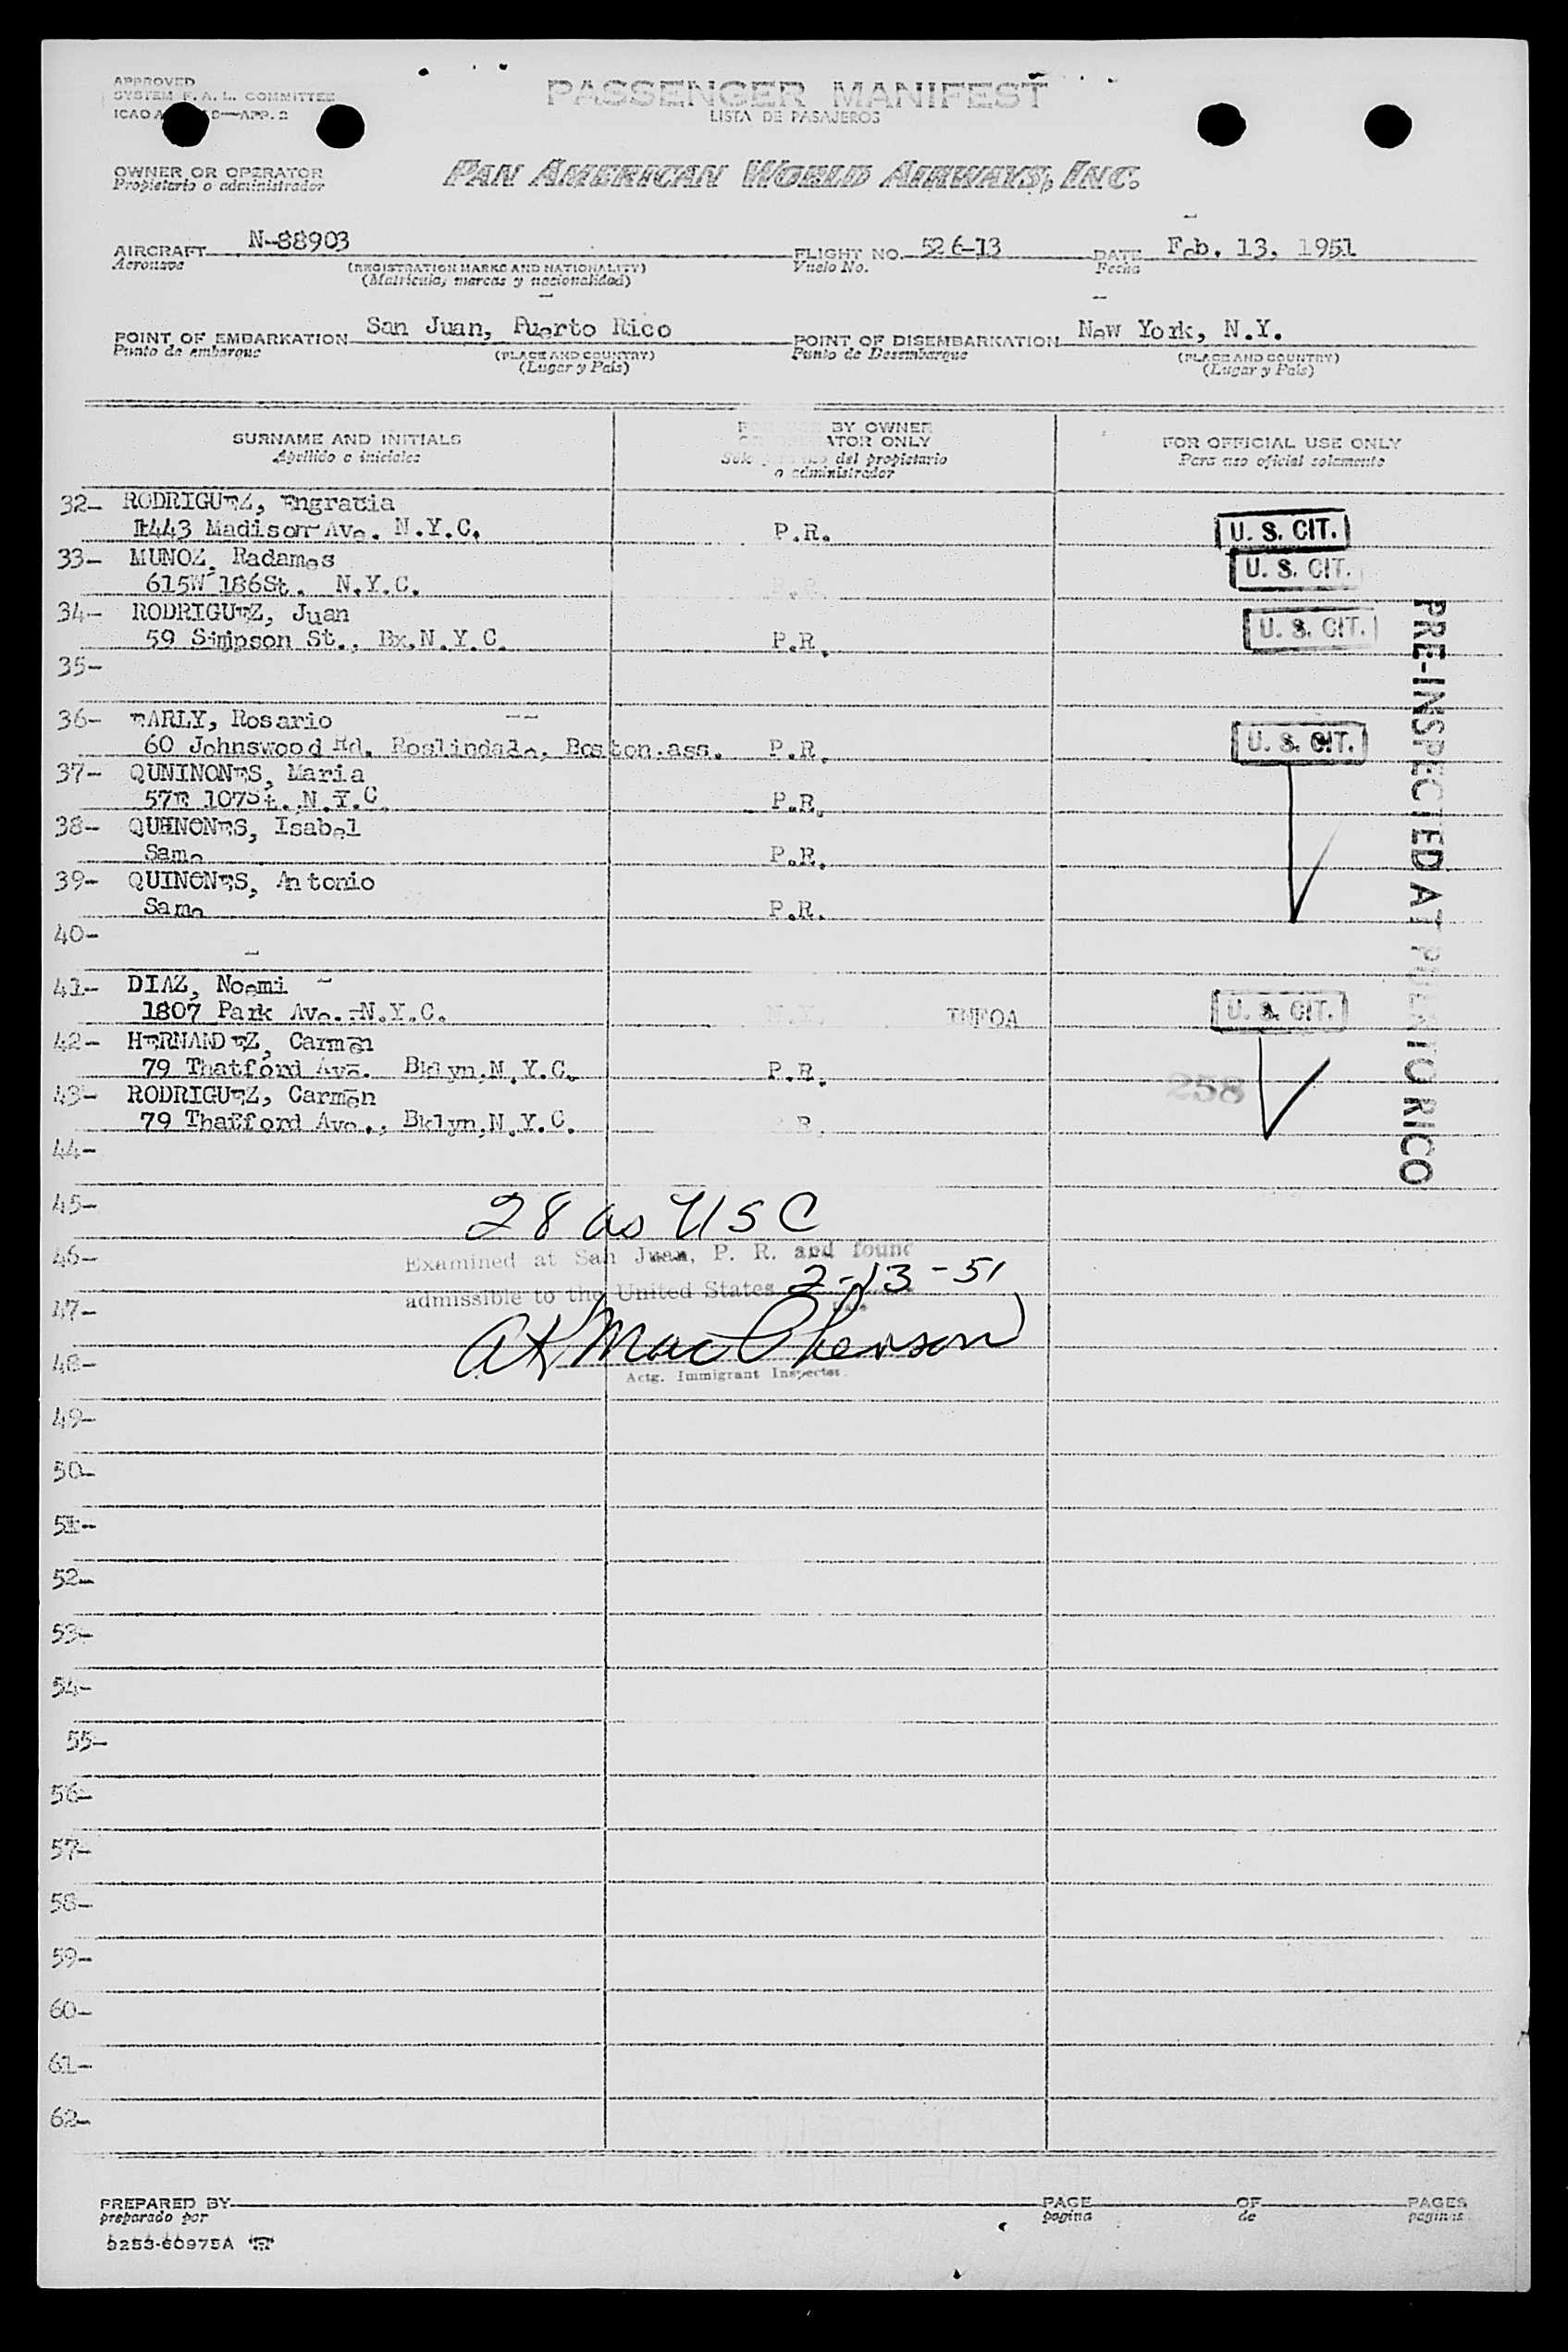 APPROVED
SYSTEM F. A. L. COMMITTEE
ICAO APP. 2
PASSENGER MANIFEST
LISTA DE PASAJEROS
OWNER OR OPERATOR
Propietario o administrador
PAN AMERICAN WORLD AIRWAYS, INC.
AIRCRAFT N-88903 FLIGHT NO. 526-13 DATE Feb. 13, 1951
Aeronave (REGISTRATION MARKS AND NATIONALITY) Vuelo No. Fecha
(Matricula, marcas y nacionalidad)
POINT OF EMBARKATION San Juan, Puerto Rico POINT OF DISEMBARKATION New York, N.Y.
Punto de embarque (PLACE AND COUNTRY) Punto de Desembarque (PLACE AND COUNTRY)
(Lugar y Pais) (Lugar y Pais)
SURNAME AND INITIALS
Apellido e iniciales
BY OWNER
OR OPERATOR ONLY
del propietario
o administrador
FOR OFFICIAL USE ONLY
Para uso oficial solamente
32- RODRIGUEZ, Engratia
1443 Madison Ave. N.Y.C. P.R. U. S. CIT.
33- MUNOZ, Radames
615W 186St. N.Y.C. P.R. U. S. CIT.
34- RODRIGUEZ, Juan
59 Simpson St., Bx.N.Y.C. P.R. U. S. CIT.
35-
36- EARLY, Rosario
60 Johnswood Rd. Roslindale, Boston.ass. P.R. U. S. CIT.
37- QUNINONES, Maria
57E 107St. N.Y.C. P.R.
38- QUINONES, Isabel
Same P.R.
39- QUINONES, Antonio
Same P.R.
40-
41- DIAZ, Noemi
1807 Park Ave. N.Y.C. N.Y. U. S. CIT.
42- HERNANDEZ, Carmen
79 Thatford Ave. Bklyn,N.Y.C. P.R. 258
43- RODRIGUEZ, Carmen
79 Thatford Ave., Bklyn,N.Y.C. P.R.
PRE-INSPECTED AT PUERTO RICO
44-
45- 28 as USC
46- Examined at San Juan, P. R. and found
admissible to the United States 2-13-51
47-
AK MacPherson
48-
Actg. Immigrant Inspector
49-
50-
51-
52-
53-
54-
55-
56-
57-
58-
59-
60-
61-
62-
PREPARED BY PAGE OF PAGES
preparado por pagina de paginas
5253-60975A